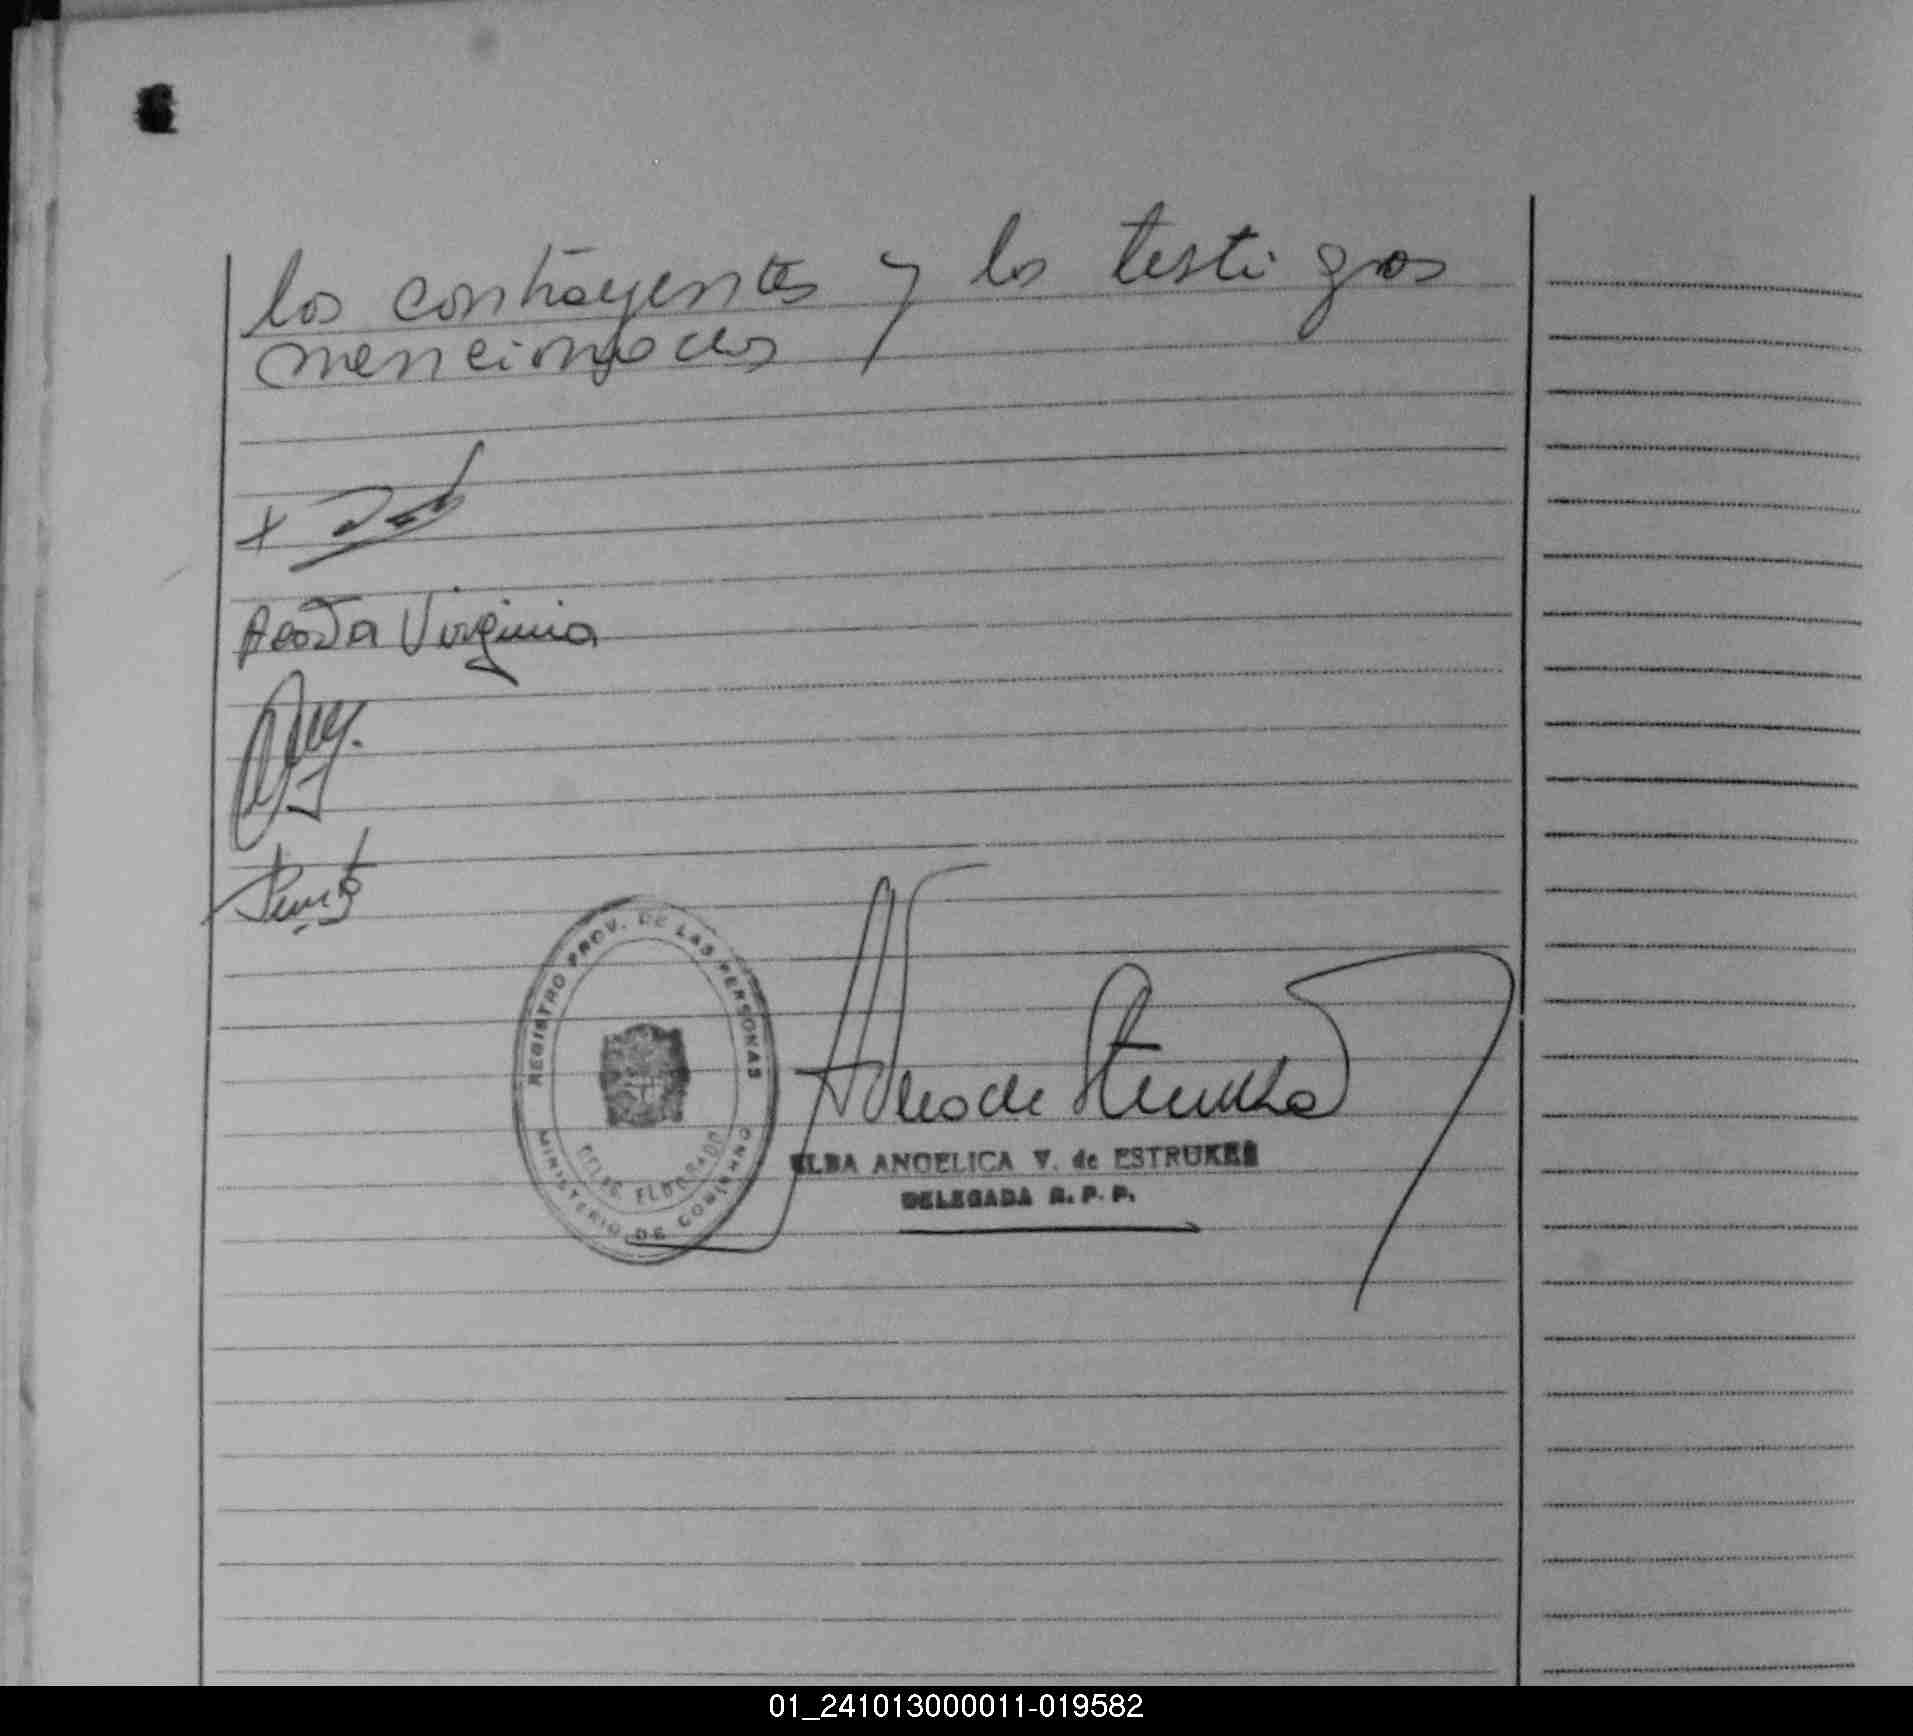 los contrayentes y los testigos
mencionados
Acosta Virginia
REGISTRO PROV. DE LAS PERSONAS
MINISTERIO DE GOBIERNO
DELEG. ELDORADO
ELBA ANGELICA V. de ESTRUKES
DELEGADA R. P. P.
01_241013000011-019582